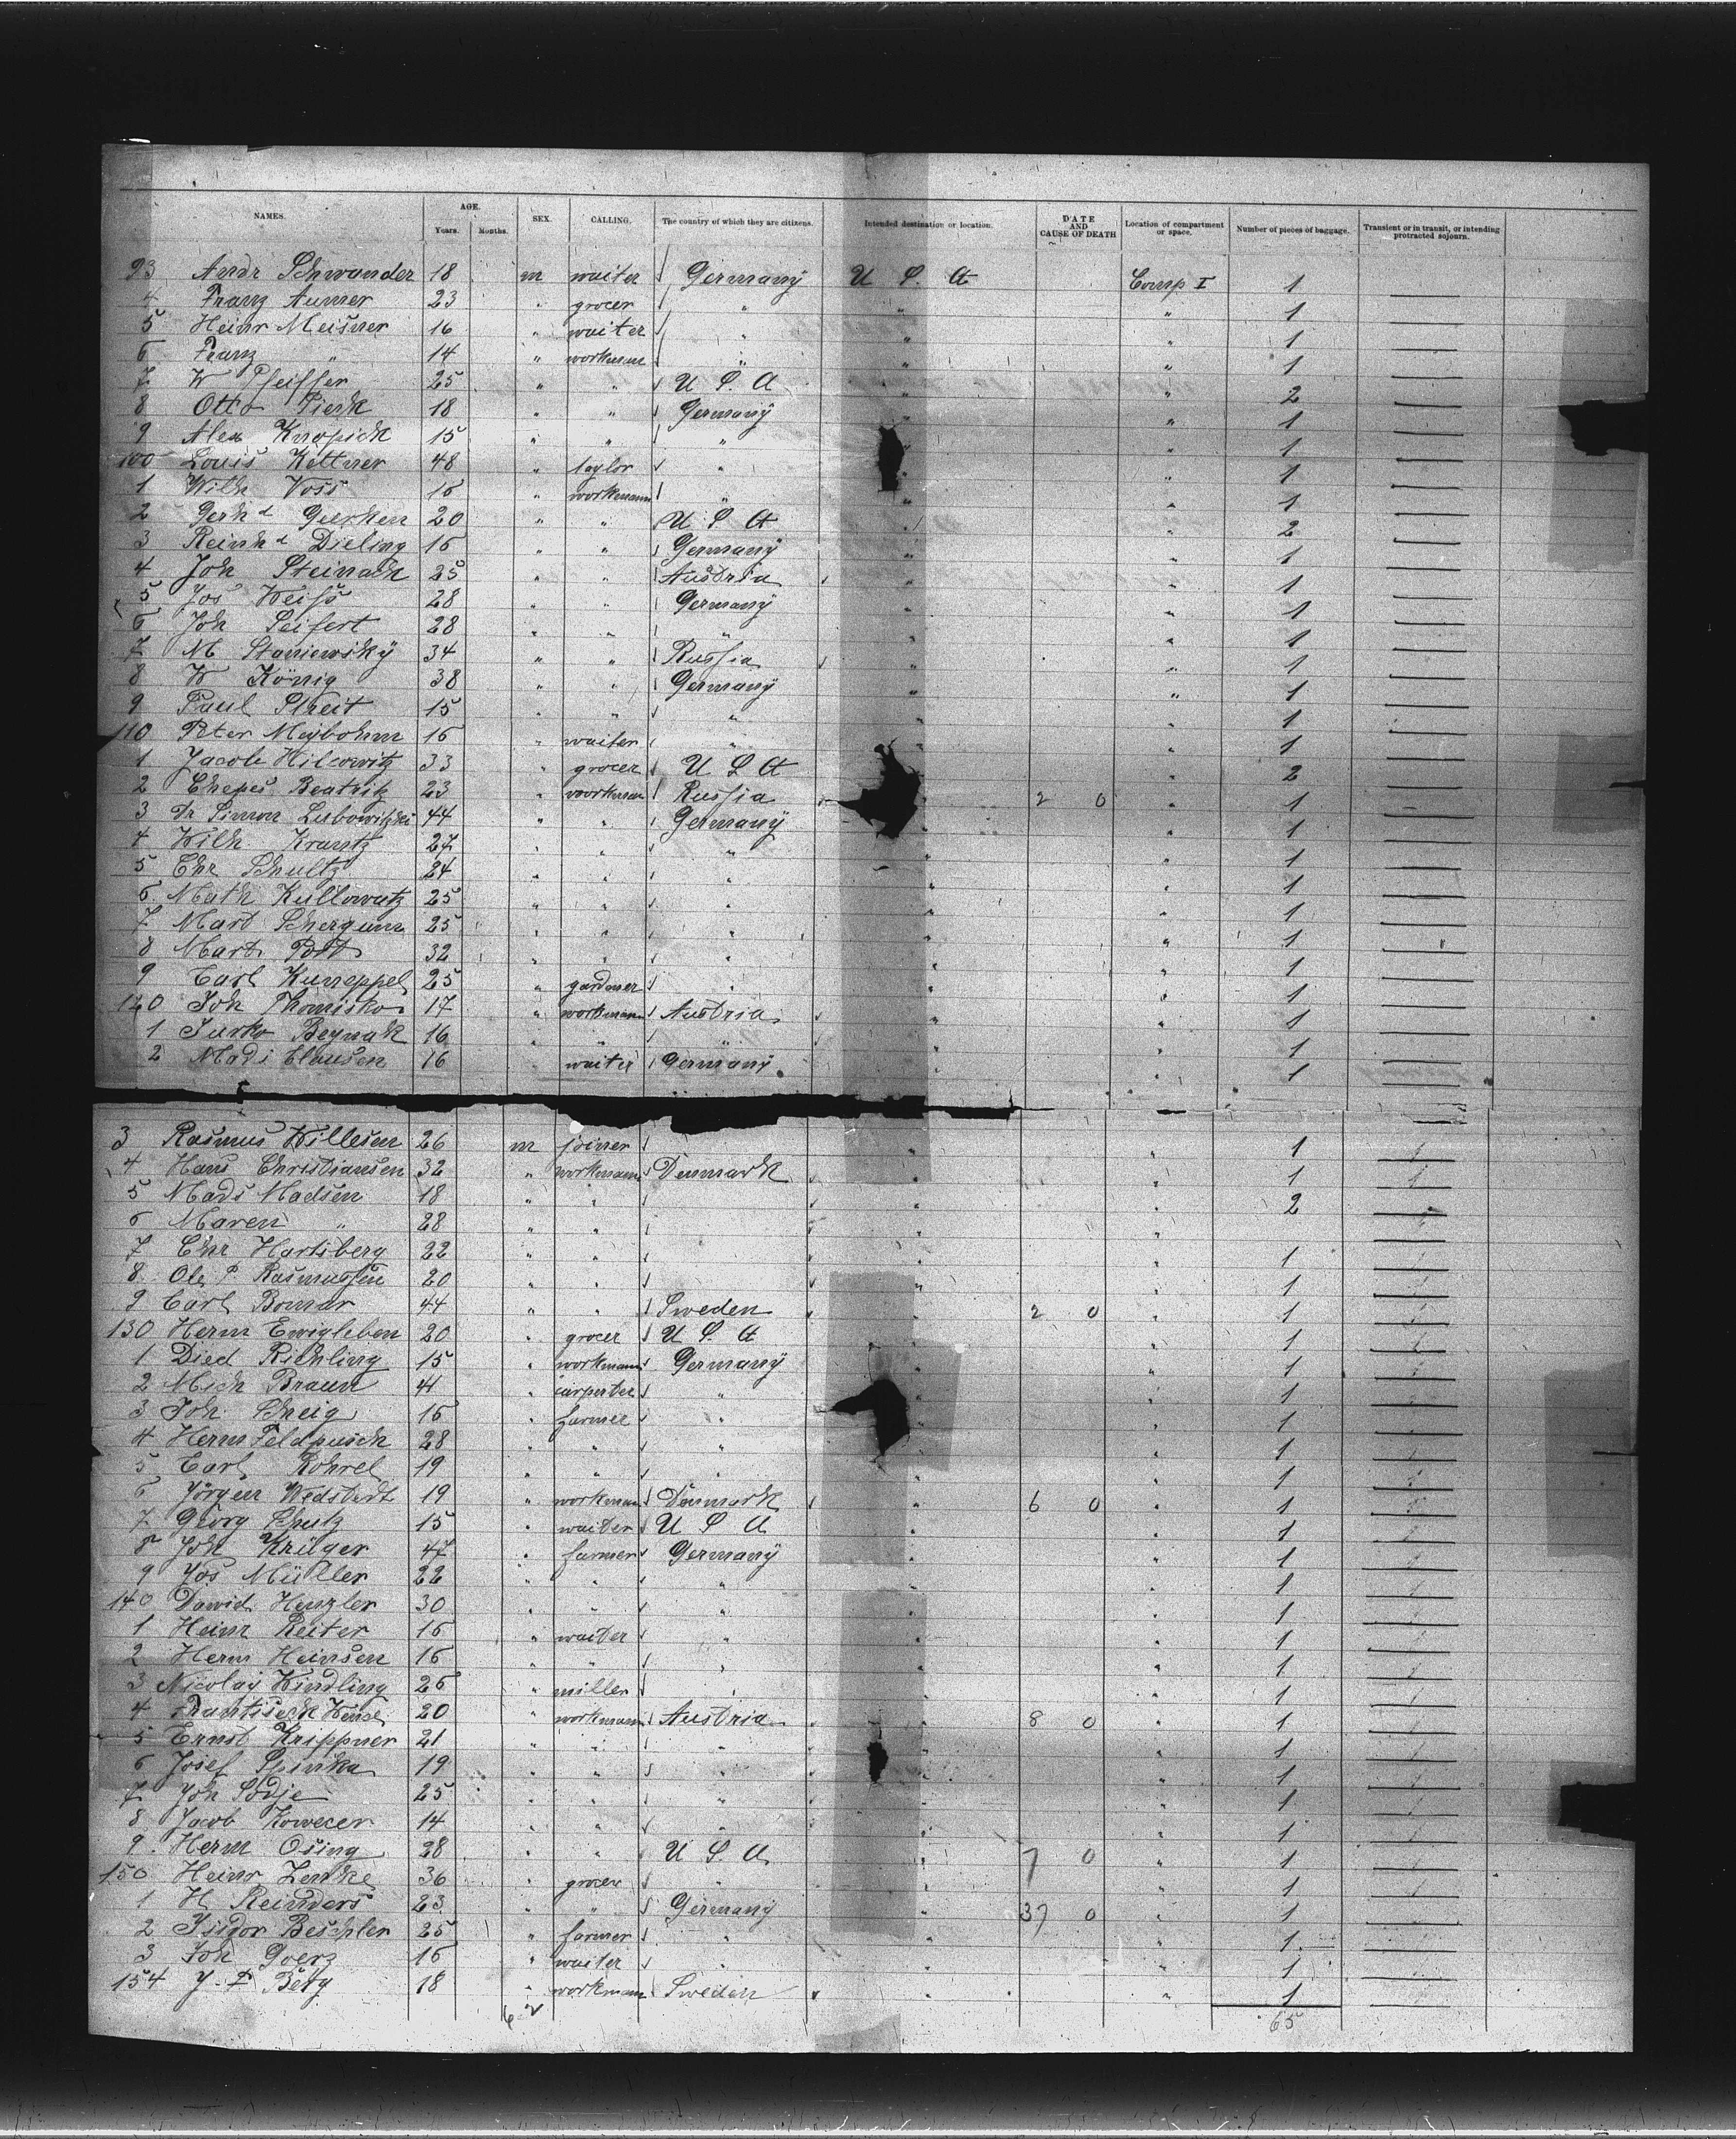 NAMES. AGE. SEX. CALLING. The country of which they are citizens. Intended destination or location. DATE AND CAUSE OF DEATH Location of compartment or space. Number of pieces of baggage. Transient or in transit, or intending protracted sojourn.
Years. Months.
93 Andr Schwander 18 m waiter Germany U S. A Comp I 1
4 Franz Aumer 23 " grocer " " " 1
5 Heinr Meisner 16 " waiter " " " 1
6 Franz " 14 " workman " " " 1
7 W Pfeiffer 25 " " U S. A " " 2
8 Otto Pierk 18 " " Germany " " 1
9 Alex Knopick 15 " " " " " 1
100 Louis Kettner 48 " taylor " " " 1
1 Wilh Voss 16 " workmann " " " 1
2 Gerhd Gierken 20 " " U S A " " 2
3 Reinhd Dieling 16 " " Germany " " 1
4 Joh Steinach 25 " " Austria " " 1
5 Jos Weiss 28 " " Germany " " 1
6 Joh Seifert 28 " " " " " 1
7 M Staniewsky 34 " " Russia " " 1
8 W König 38 " " Germany " " 1
9 Paul Streit 15 " " " " " 1
110 Peter Meybohm 16 " waiter " " " 1
1 Jacob Hilcowitz 33 " grocer U S A " " 2
2 Beatritz 23 " workman Russia " 2 0 " 1
3 Dr Simon Lubowitzki 44 " " Germany " " 1
4 Wilh Krantz 27 " " " " " 1
5 Chr Schultz 24 " " " " " 1
6 Math Kullowatz 25 " " " " " 1
7 Mart 25 " " " " " 1
8 Mart Pott 32 " " " " " 1
9 Carl Kuneppel 25 " gardener " " " 1
120 Joh Thomisko 17 " workmann Austria " 1
1 Jurko Beynak 16 " " " " 1
2 Mads Clausen 16 waiter Germany " 1
3 Rasmus Willesen 26 m joiner " " 1
4 Hans Christiansen 32 " workmann Denmark " " 1
5 Mads Madsen 18 " " " " 2
6 Maren " 28 " " " "
7 Chr Hartsberg 22 " " " " 1
8 Ole P Rasmussen 20 " " " " 1
9 Carl Bomar 44 " " Sweden " 2 0 " 1
130 Herm Ewigleben 20 " grocer U S. A " " 1
1 Died Richling 15 " workmann Germany " " 1
2 Mich Braun 41 " carpenter " " " 1
3 Joh 16 " farmer " " " 1
4 Herm Feldpusch 28 " " " " " 1
5 Carl Rohrel 19 " " " " " 1
6 Jörgen Wedstedt 19 " workman Denmark " 6 0 " 1
7 Georg Schutz 15 " waiter U S A " " 1
8 Joh Krüger 47 " farmer Germany " " 1
9 Jos Müller 22 " " " " " 1
140 Dawid Henzler 30 " " " " " 1
1 Heinr Reiter 16 " waiter " " " 1
2 Herm Heinsen 16 " " " " " 1
3 Nicolay Windling 26 " miller " " " 1
4 Frantisek 20 " workmann Austria " 8 0 " 1
5 Ernst Krippner 21 " " " " " 1
6 Josef Spinka 19 " " " " " 1
7 Joh Sodje 25 " " " " " 1
8 Jacob Kowecer 14 " " " " " 1
9 Herm Osing 28 " " U S. A " 7 0 " 1
150 Heinr Lenke 36 " grocer " " " 1
1 H Reinders 23 " " Germany " 37 0 " 1
2 Isidor Beschler 25 " farmer " " " 1
3 Joh Goerz 16 " waiter " " " 1
154 J. P Berg 18 " workmann Sweden " " 1
65